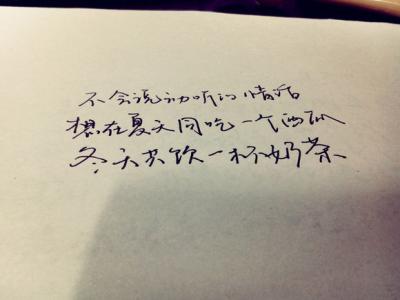 不会说动听的情话
想在夏天同吃一个西瓜
冬天共饮一杯奶茶